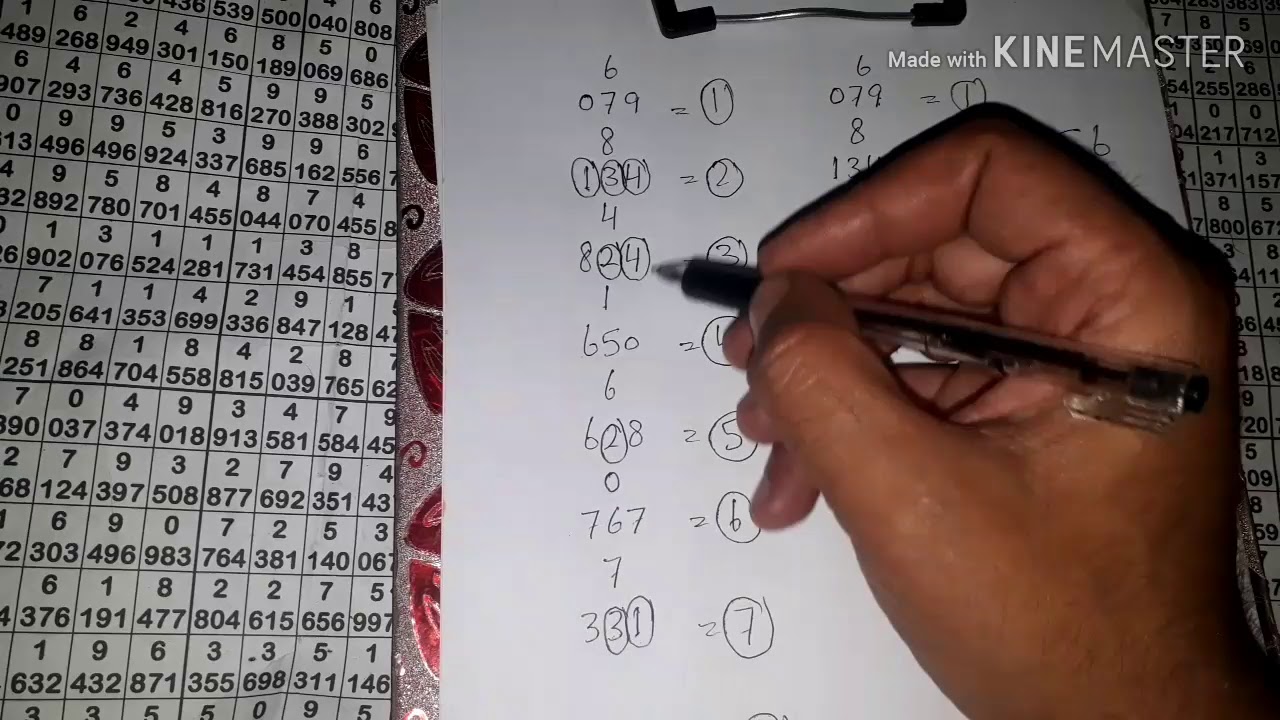 436 539 500 040 808
1 6 2 4 6 8 5 0
489 268 949 301 150 189 069 686
6 4 6 4 5 9 9 5
907 293 736 428 816 270 388 302
0 9 9 5 3 9 9 6
613 496 496 924 337 685 162 556 7
4 9 5 8 4 8 7 4
32 892 780 701 455 044 070 455 8
1 3 1 1 1 3 8
26 902 076 524 281 731 454 855 7
7 1 1 4 2 9 1
8 205 641 353 699 336 847 128 47
8 8 1 8 4 2 8
251 864 704 558 815 039 765 62
7 0 4 9 3 4 7 9
390 037 374 018 913 581 584 45
2 7 9 3 2 7 9 4
68 124 397 508 877 692 351 43
1 6 9 0 7 2 5 3
72 303 496 983 764 381 140 067
6 1 8 2 2 7 5
4 376 191 477 804 615 656 997
1 9 6 3 3 5 1
632 432 871 355 698 311 146
3 3 5 5 0 9 5
Made with KINEMASTER
6
079 = 1
8
134 = 2
4
824 3
1
650 = 4
6
628 = 5
0
767 = 6
7
331 = 7
6
079 = 1
8
6
7 8 5
54 255 286
1 0 0
04 217 712
1 3
371 157
8 5
7 800 672